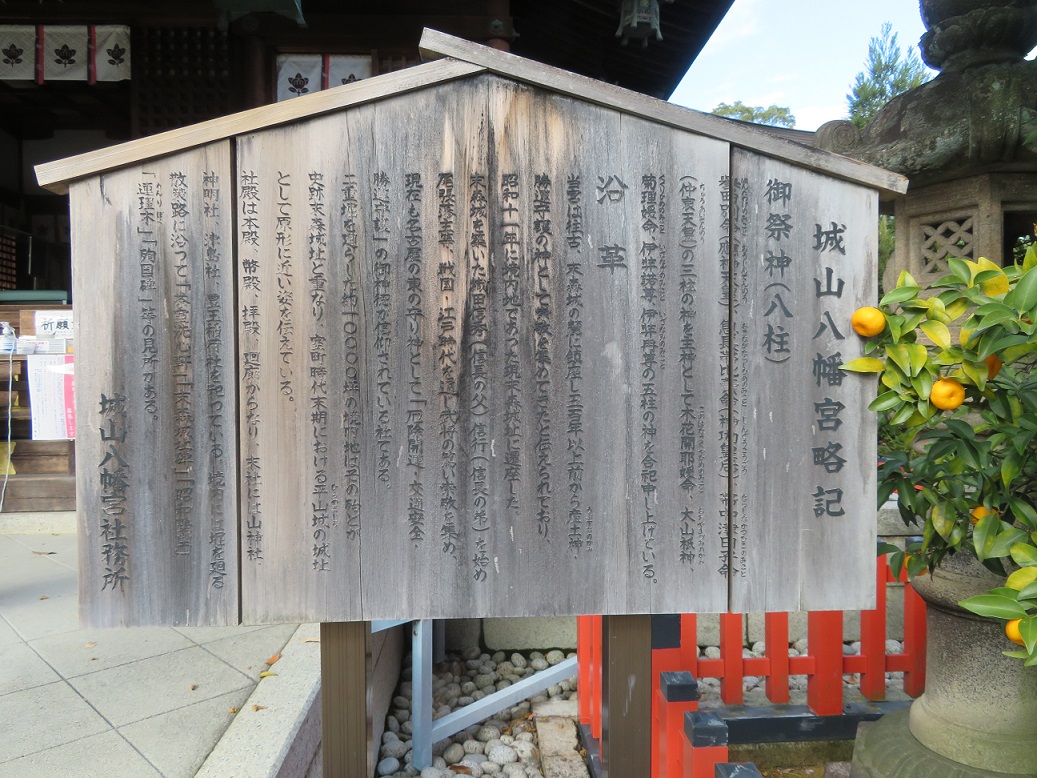 城山八幡宮略記
御祭神（八柱）
誉田別命（応神天皇）、息長帯比売命（神功皇后）、帯中津日子命
（仲哀天皇）の三柱の神を主神として木花開耶媛命、大山祇神、
菊理媛命、伊弉諾尊、伊弉冉尊の五柱の神を合祀申し上げている。
沿革
当宮は往古、末森城の麓に鎮座し五百年以上前から産土神、
勝運等護の神として崇敬を集めてきたと伝えられており、
昭和十一年に境内地であった現末森城址に遷座した。
末森城を築いた織田信秀（信長の父）信行（信長の弟）を始め
尾張藩主等、戦国・江戸時代を通し武将の篤い崇敬を集め、
現在も名古屋の東の守り神として「厄除開運・交通安全・
の御神徳が信仰されている社である。
二重堀を巡らした約一〇〇〇〇坪の境内地はその殆どが
史跡末森城址と重なり、室町時代末期における平山城の城址
として原形に近い姿を伝えている。
社殿は本殿、幣殿、拝殿、廻廊からなり、末社には山神社、
神明社、津島社、
を祀っている。境内には堀を廻る
散策路に沿って
「連理木」「殉国碑」等の見所がある。
城山八幡宮社務所
祈願